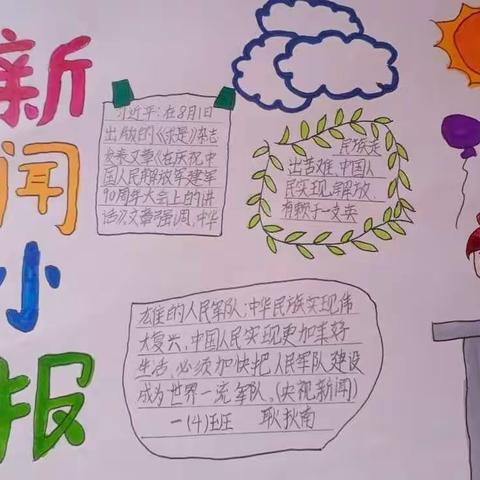 新
闻
小
报
习近平:在8月1日
出版的《求是》杂志
发表文章《在庆祝中
国人民解放军建军
90周年大会上的讲
话》文章强调,中华
民族走
出苦难、中国人
民实现解放,
有赖于一支英
雄的人民军队;中华民族实现伟
大复兴,中国人民实现更加美好
生活,必须加快把人民军队建设
成为世界一流军队。(央视新闻)
一(4)班